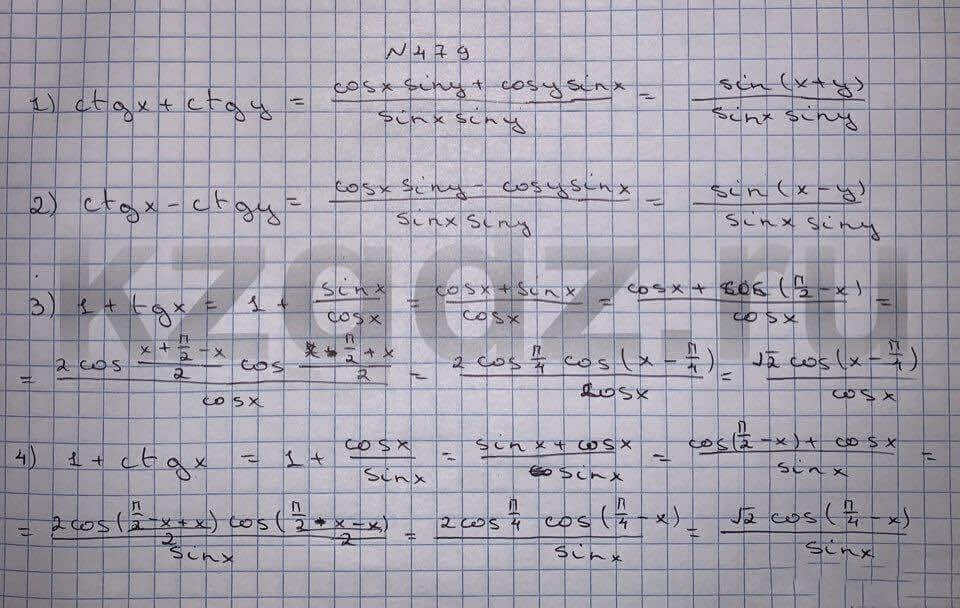 N 479
1) ctgx + ctgy = (cosx siny + cosy sinx)/(sinx siny) = sin(x+y)/(sinx siny)
2) ctgx - ctgy = (cosx siny - cosy sinx)/(sinx siny) = sin(x-y)/(sinx siny)
3) 1 + tgx = 1 + sinx/cosx = (cosx + sinx)/cosx = (cosx + cos(π/2 - x))/cosx =
= (2 cos (x + π/2 - x)/2 cos (x - π/2 + x)/2)/cosx = (2 cos π/4 cos(x - π/4))/cosx = (√2 cos(x - π/4))/cosx
4) 1 + ctgx = 1 + cosx/sinx = (sinx + cosx)/sinx = (cos(π/2 - x) + cosx)/sinx =
= (2cos(π/2 - x + x)/2 cos(π/2 - x - x)/2)/sinx = (2cos π/4 cos(π/4 - x))/sinx = (√2 cos(π/4 - x))/sinx
kzgdz.ru